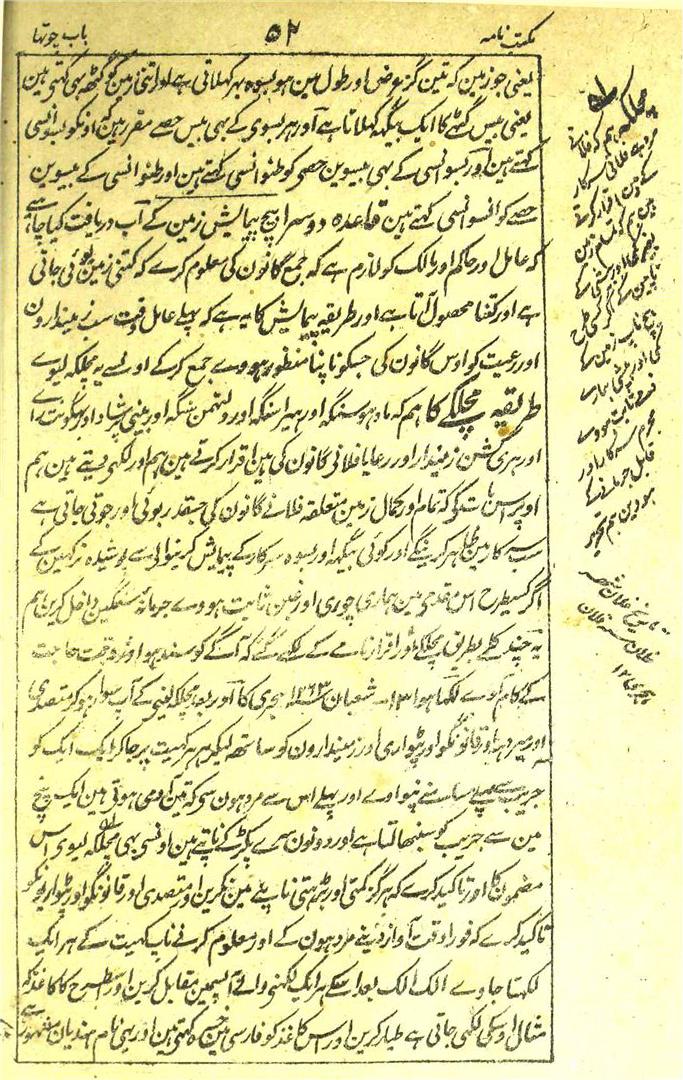 مکتب نامہ ۵۲ باب چوتھا
یعنی جو زمین کہ تین گز عرض اور طول مین ہو بسوہ بہر کہلاتی ہے اور اتنی زمین کو گٹھہ بھی کہتی ہین
یعنی بیس گٹہے کا ایک بیگہہ کہلاتا ہے اور ہر بسوی کے بہی بیس حصے مقرر ہین کہ اونکو بسوانسی
کہتے ہین اور بسوانسی کے بہی بیسوین حصی کو طنوانسی کہتے ہین اور طنوانسی کے بیسوین
حصے کو انسوانسی کہتے ہین قاعدہ دوسرا بیچ پیمایش زمین کے آپ دریافت کیا چاہیے
کہ عامل اور حاکم اور مالک کو لازم ہے کہ جمع گانون کی معلوم کرے کہ کتنی زمین بوئی جاتی
ہے اور کتنا محصول آتا ہے اور طریقہ پیمایش کا یہ ہے کہ پہلے عامل وقت سب زمیندارون
اور رعیت کو اوس گانون کی جسکو ناپنا منظور ہووے جمع کرکے اون سے یہ مچلکہ لیوے
طریقہ مچلکے کا ہم کہ مادہو سنگہ اور ہیرا سنگہ اور ولچہمن سنگہ اور بینی پرشاد اور بہگونت رای
اور ہری کشن زمیندار اور رعایا فلانی گانون کی ہین اقرار کرتے ہین ہم اور لکہی دیتے ہین ہم
اوپر اس بات کے کہ تمام اور کمال زمین متعلقہ فلانے گانون کی جسقدر بوئی اور جوتی جاتی ہے
سب سرکار مین ظاہر کرینگے اور کوئی بیگہہ اور بسوہ سرکار کے پیمایش کرنیوالی سے پوشیدہ نرکہین گے
اگر کسیطرح اس مقدمی مین ہماری چوری اور غبن ثابت ہووے جرمانہ سنگین داخل کرین ہم
یہ چند کلمے بطریق مچلکے اور اقرارنامے کے لکہے گئے کہ آگے کو سند ہو اور وقت حاجت
کے کام آوے لکہا ہوا ۱۳ شعبان سنہ ۱۲۶۳ ہجری کا اور بعد مچلکہ لینی کے آپ سوار ہو کر متصدی
اور میردہہ اور قانونگو اور پٹواری اور زمیندارون کو ساتہہ لیکر ہر ہر کہیت پر جاکر ایک ایک کو
جریب سے اپنے سامنے نپواوے اور پہلے اس سے مردہون سی کہ تین آدمی ہوتی ہین ایک بیچ
مین سے جریب کو سنبہالتا ہے اور دونون سرے پکڑ کے ناپتے ہین اونسی بہی مچلکہ لیوی اس
مضمون کا اور تاکید کرے کہ ہرگز کمتی اور بڑہتی ناپنے مین نکرین اور متصدی اور قانونگو اور پٹواریونکو
تاکید کرے کہ فوراً وقت آواز دینے مردہون کے اور معلوم کرنے ناپ کہیت کے ہر ایک
لکہتا جاوے الگ الگ بعد اسکے ہر ایک لکہنی والے آپسمین مقابل کرین اور اسطرح کا کاغذ کہ
مثال اوسکی لکہی جاتی ہے طیار کرین اور اس کاغذ کو فارسی مین خسرہ کہتی ہین اور یہی نام ہندیان مشہور ہے
مچلکہ ہم کہ فلانے
مردہے فلانی سرکار
کے ہین اقرار کرتے
ہین ہم کہ تمام زمین
ناپین گے ہم اگر کسی طرح
بیچ ناپ زمین کے
ہمارے
ذمے ثابت ہووے
مجرم سرکار اور
قابل جرمانے کے
ہووین ہم تحریر
تاریخ فلان شہر
فلان سنہ فلان
ہجری ۱۲